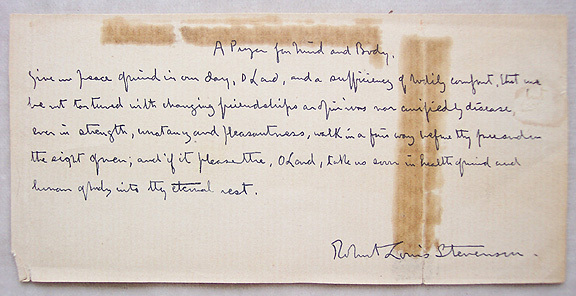 A Prayer for Mind and Body.
Give us peace of mind in our day, O Lord, and a sufficiency of bodily comfort, that we
be not tortured with changing friendships or opinions nor crucified by disease,
even in strength, constancy and pleasantness, walk in a fair way before thy presence in
the sight of men; and if it please thee, O Lord, take us soon in health of mind and
honour of body into thy eternal rest.
Robert Louis Stevenson.